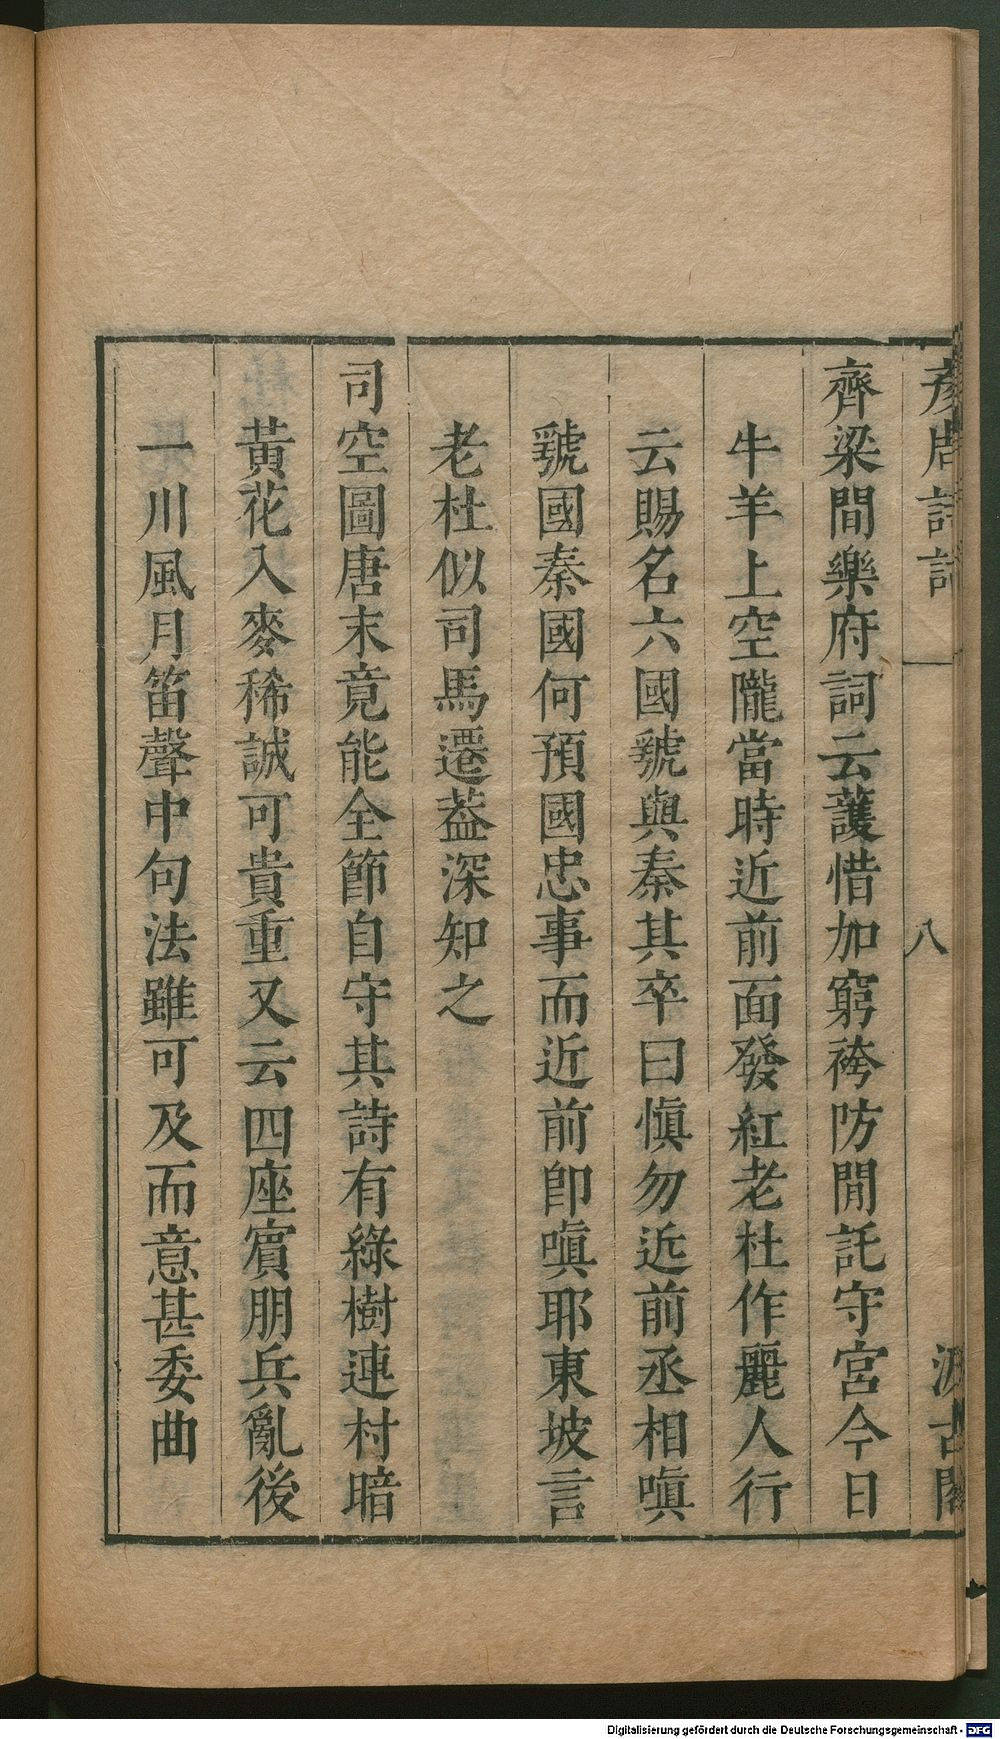 彦周詩話 八 汲古閣
齊梁間樂府詞云護惜加窮袴防閒託守宮今日
牛羊上空隴當時近前面發紅老杜作麗人行
云賜名六國虢與秦其卒曰愼勿近前丞相嗔
虢國秦國何預國忠事而近前卽嗔耶東坡言
老杜似司馬遷葢深知之
司空圖唐末竟能全節自守其詩有綠樹連村暗
黃花入麥稀誠可貴重又云四座賓朋兵亂後
一川風月笛聲中句法雖可及而意甚委曲
Digitalisierung gefördert durch die Deutsche Forschungsgemeinschaft - DFG